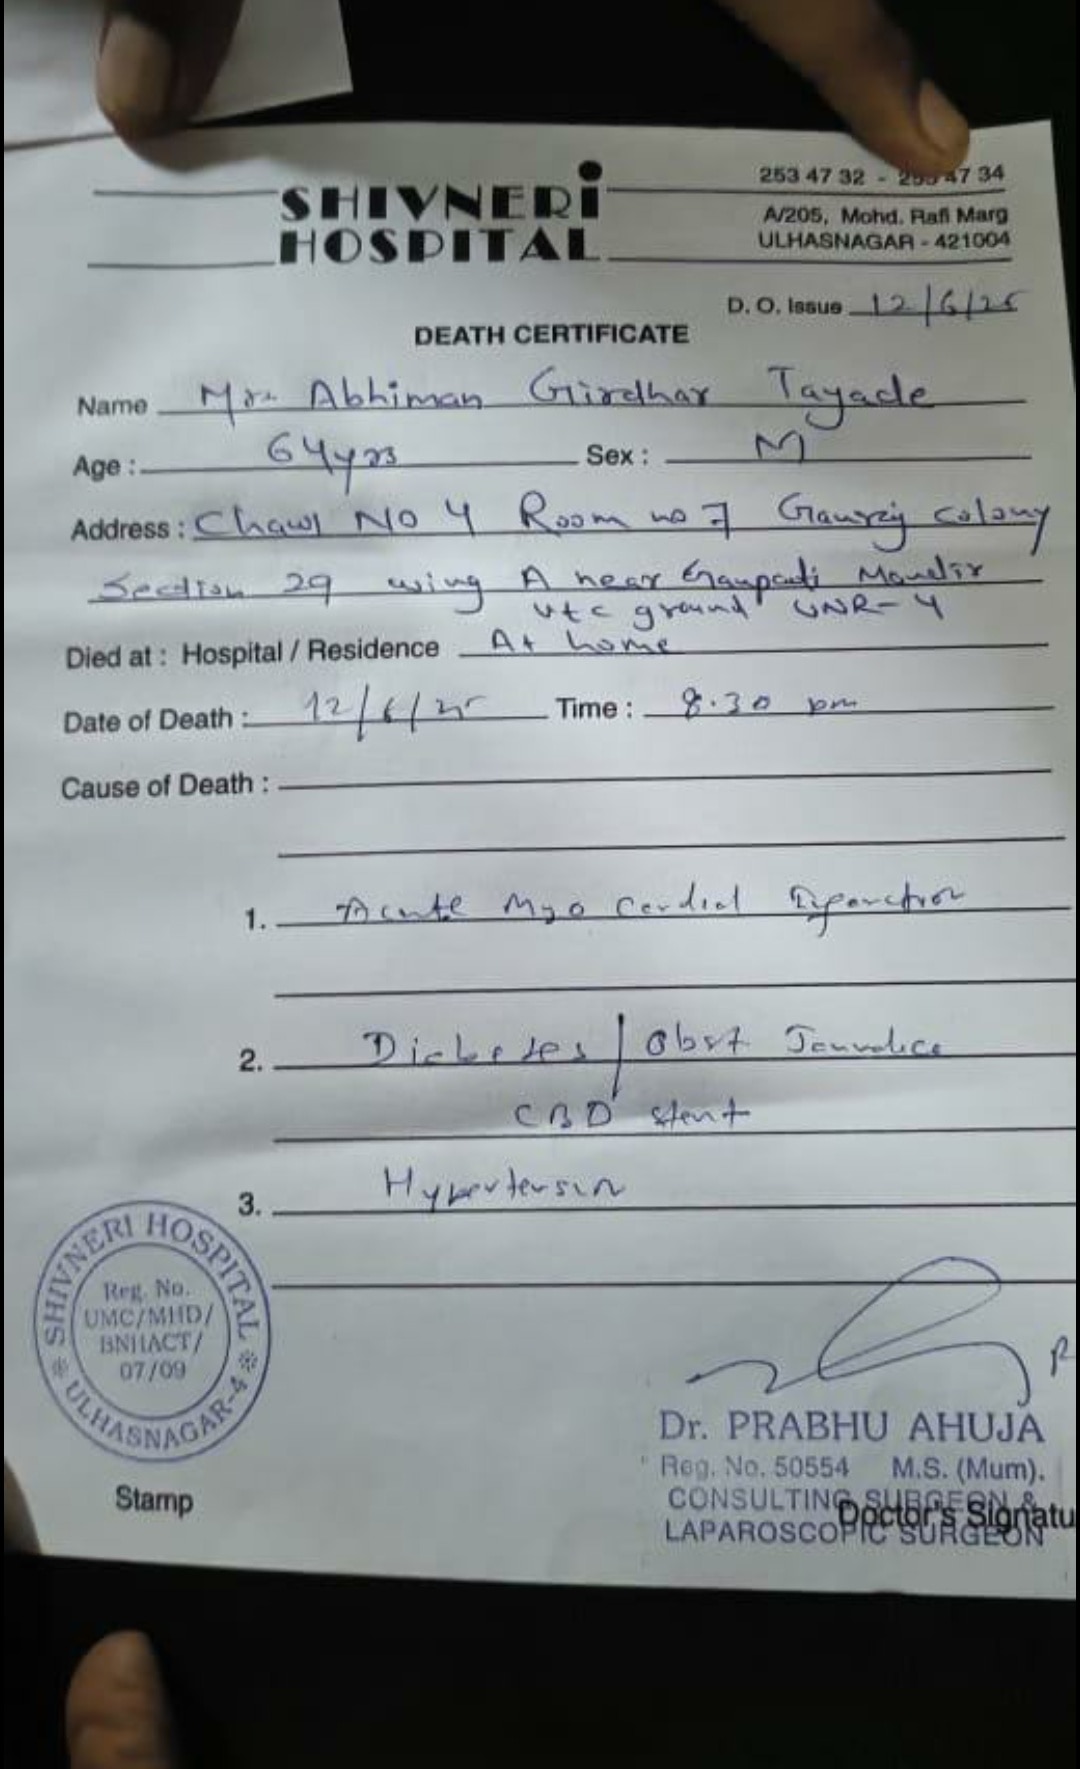 SHIVNERi
HOSPITAL
253 47 32 - 253 47 34
A/205, Mohd. Rafi Marg
ULHASNAGAR - 421004
D. O. Issue 12/6/25
DEATH CERTIFICATE
Name Mr. Abhiman Girdhar Tayade
Age : 64yrs Sex : M
Address : Chawl No 4 Room no 7 colony
Section 29 wing A near Ganpati Mandir
vtc ground UNR-4
Died at : Hospital / Residence At home
Date of Death : 12/6/25 Time : 8.30 pm
Cause of Death :
1. Acute Myo Cardial Infarction
2. Diabetes / Obst Jaundice
CBD stent
3. Hypertension
SHIVNERI HOSPITAL
ULHASNAGAR-4
Reg. No.
UMC/MHD/
BNHACT/
07/09
Stamp
Dr. PRABHU AHUJA
Reg. No. 50554 M.S. (Mum).
CONSULTING SURGEON &
LAPAROSCOPIC SURGEON
Doctor's Signatu